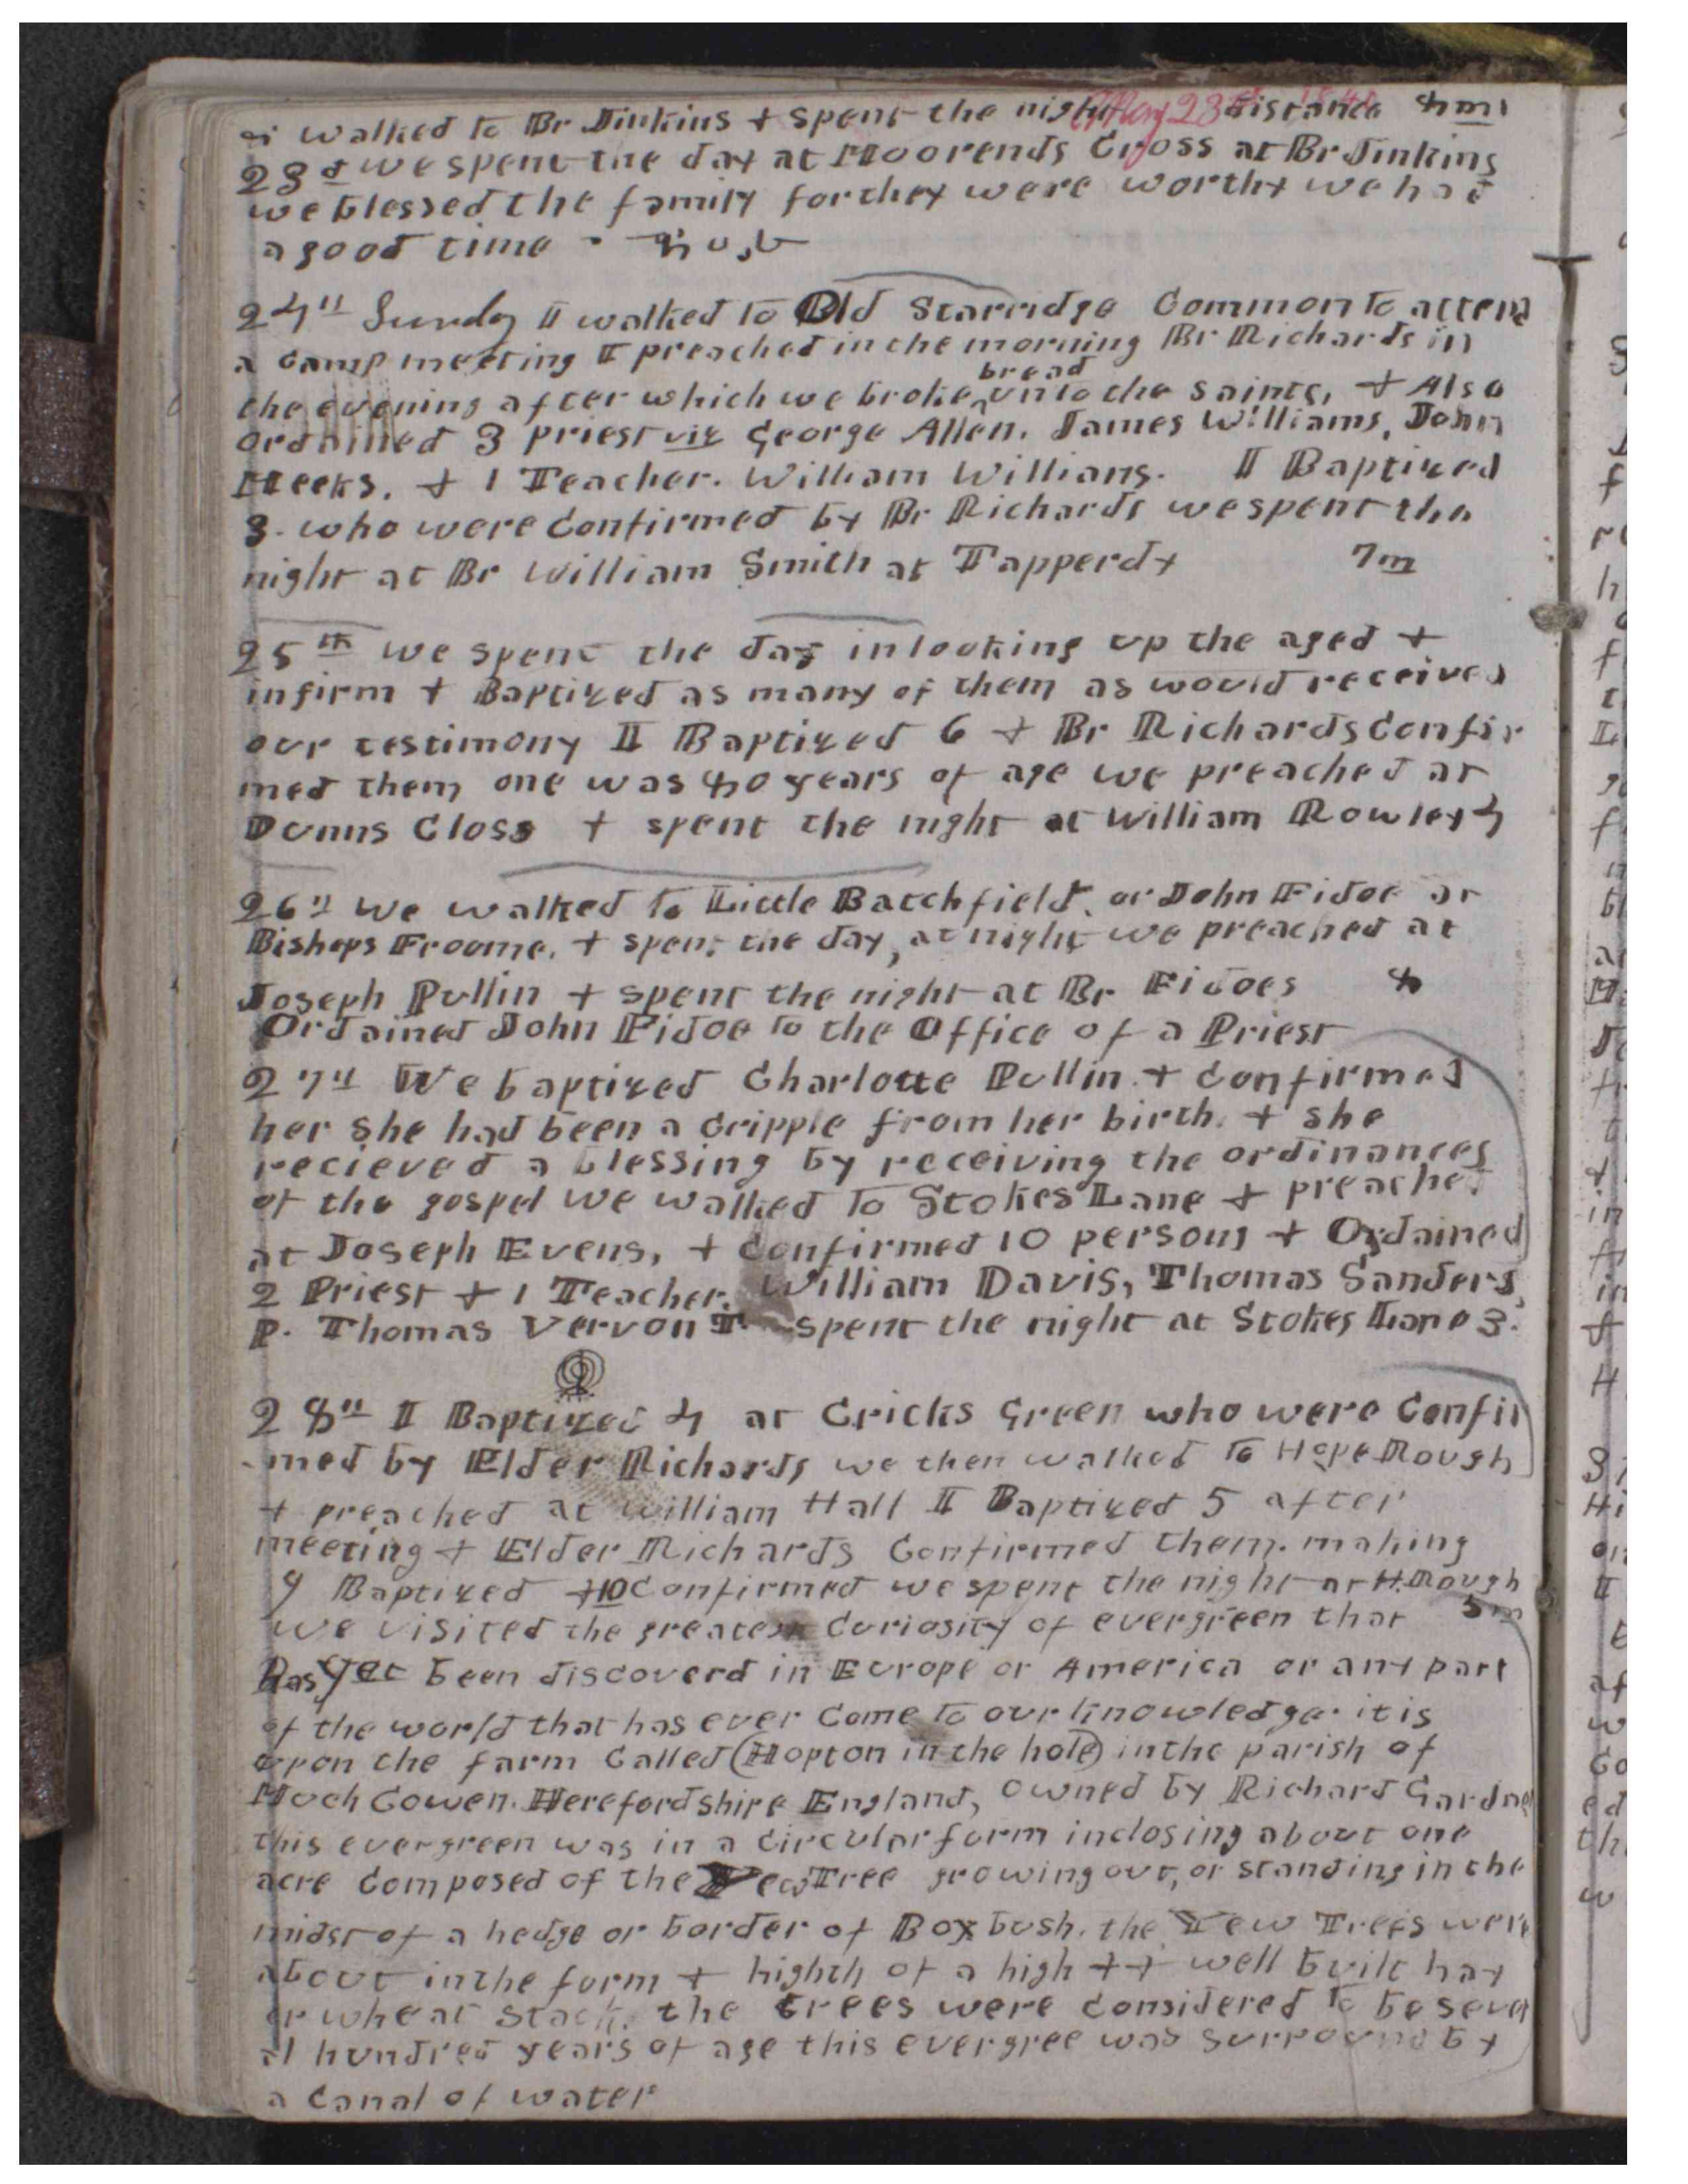 walked to Br Jinkins + spent the night distance 8 mi
May 23
23d we spent the day at Moorends Cross at Br Jinkins
we blessed the family for they were worthy we had
a good time
24th Sunday I walked to Old Starridge Common to attend
a camp meeting I preached in the morning Br Richards in
bread
the evening after which we broke unto the saints, + Also
ordained 3 priest viz George Allen. James Williams, John
Meeks. + 1 Teacher. William Willians. I Baptized
3. who were Confirmed by Br Richards we spent the
night at Br William Smith at Tapperdy 7m
25th we spent the day in looking up the aged +
infirm + Baptized as many of them as would received
our testimony I Baptized 6 + Br Richards Confir
med them one was 80 years of age we preached at
Dunns Close + spent the night at William Rowley 4
26th we walked to Little Batchfield. or John Fidoe at
Bishops Froome. + spent the day, at night we preached at
Joseph Pullin + spent the night at Br Fidoes 8
Ordained John Fidoe to the Office of a Priest
27th We baptized Charlotte Pullin. + Confirmed
her she had been a cripple from her birth. + she
recieved a blessing by receiving the ordinances
of the gospel we walked to Stokes Lane + preached
at Joseph Evens, + Confirmed 10 persons + Ordained
2 Priest + 1 Teacher. William Davis, Thomas Sanders,
P. Thomas Vervon T. spent the night at Stokes Lane 3.
28th I Baptized 4 at Cricks Green who were Confir
med by Elder Richards we then walked to Hope Rough
+ preached at William Hall I Baptized 5 after
meeting + Elder Richards Confirmed them. making
9 Baptized + 10 Confirmed we spent the night at H. Rough
5m
we visited the greatest Curiosity of evergreen that
has yet been discoverd in Europe or America or any part
of the world that has ever Come to our knowledge. it is
upon the farm Called (Hopton in the hole) in the parish of
Moch Cowen. Herefordshire England, owned by Richard Gardner
this evergreen was in a circular form inclosing about one
acre Composed of the Yew Tree growing out, or standing in the
midst of a hedge or border of Box bush. the Yew Trees were
about in the form + highth of a high ++ well built hay
or wheat stack. the trees were considered to be sever
al hundred years of age this evergree was surround by
a Canal of water